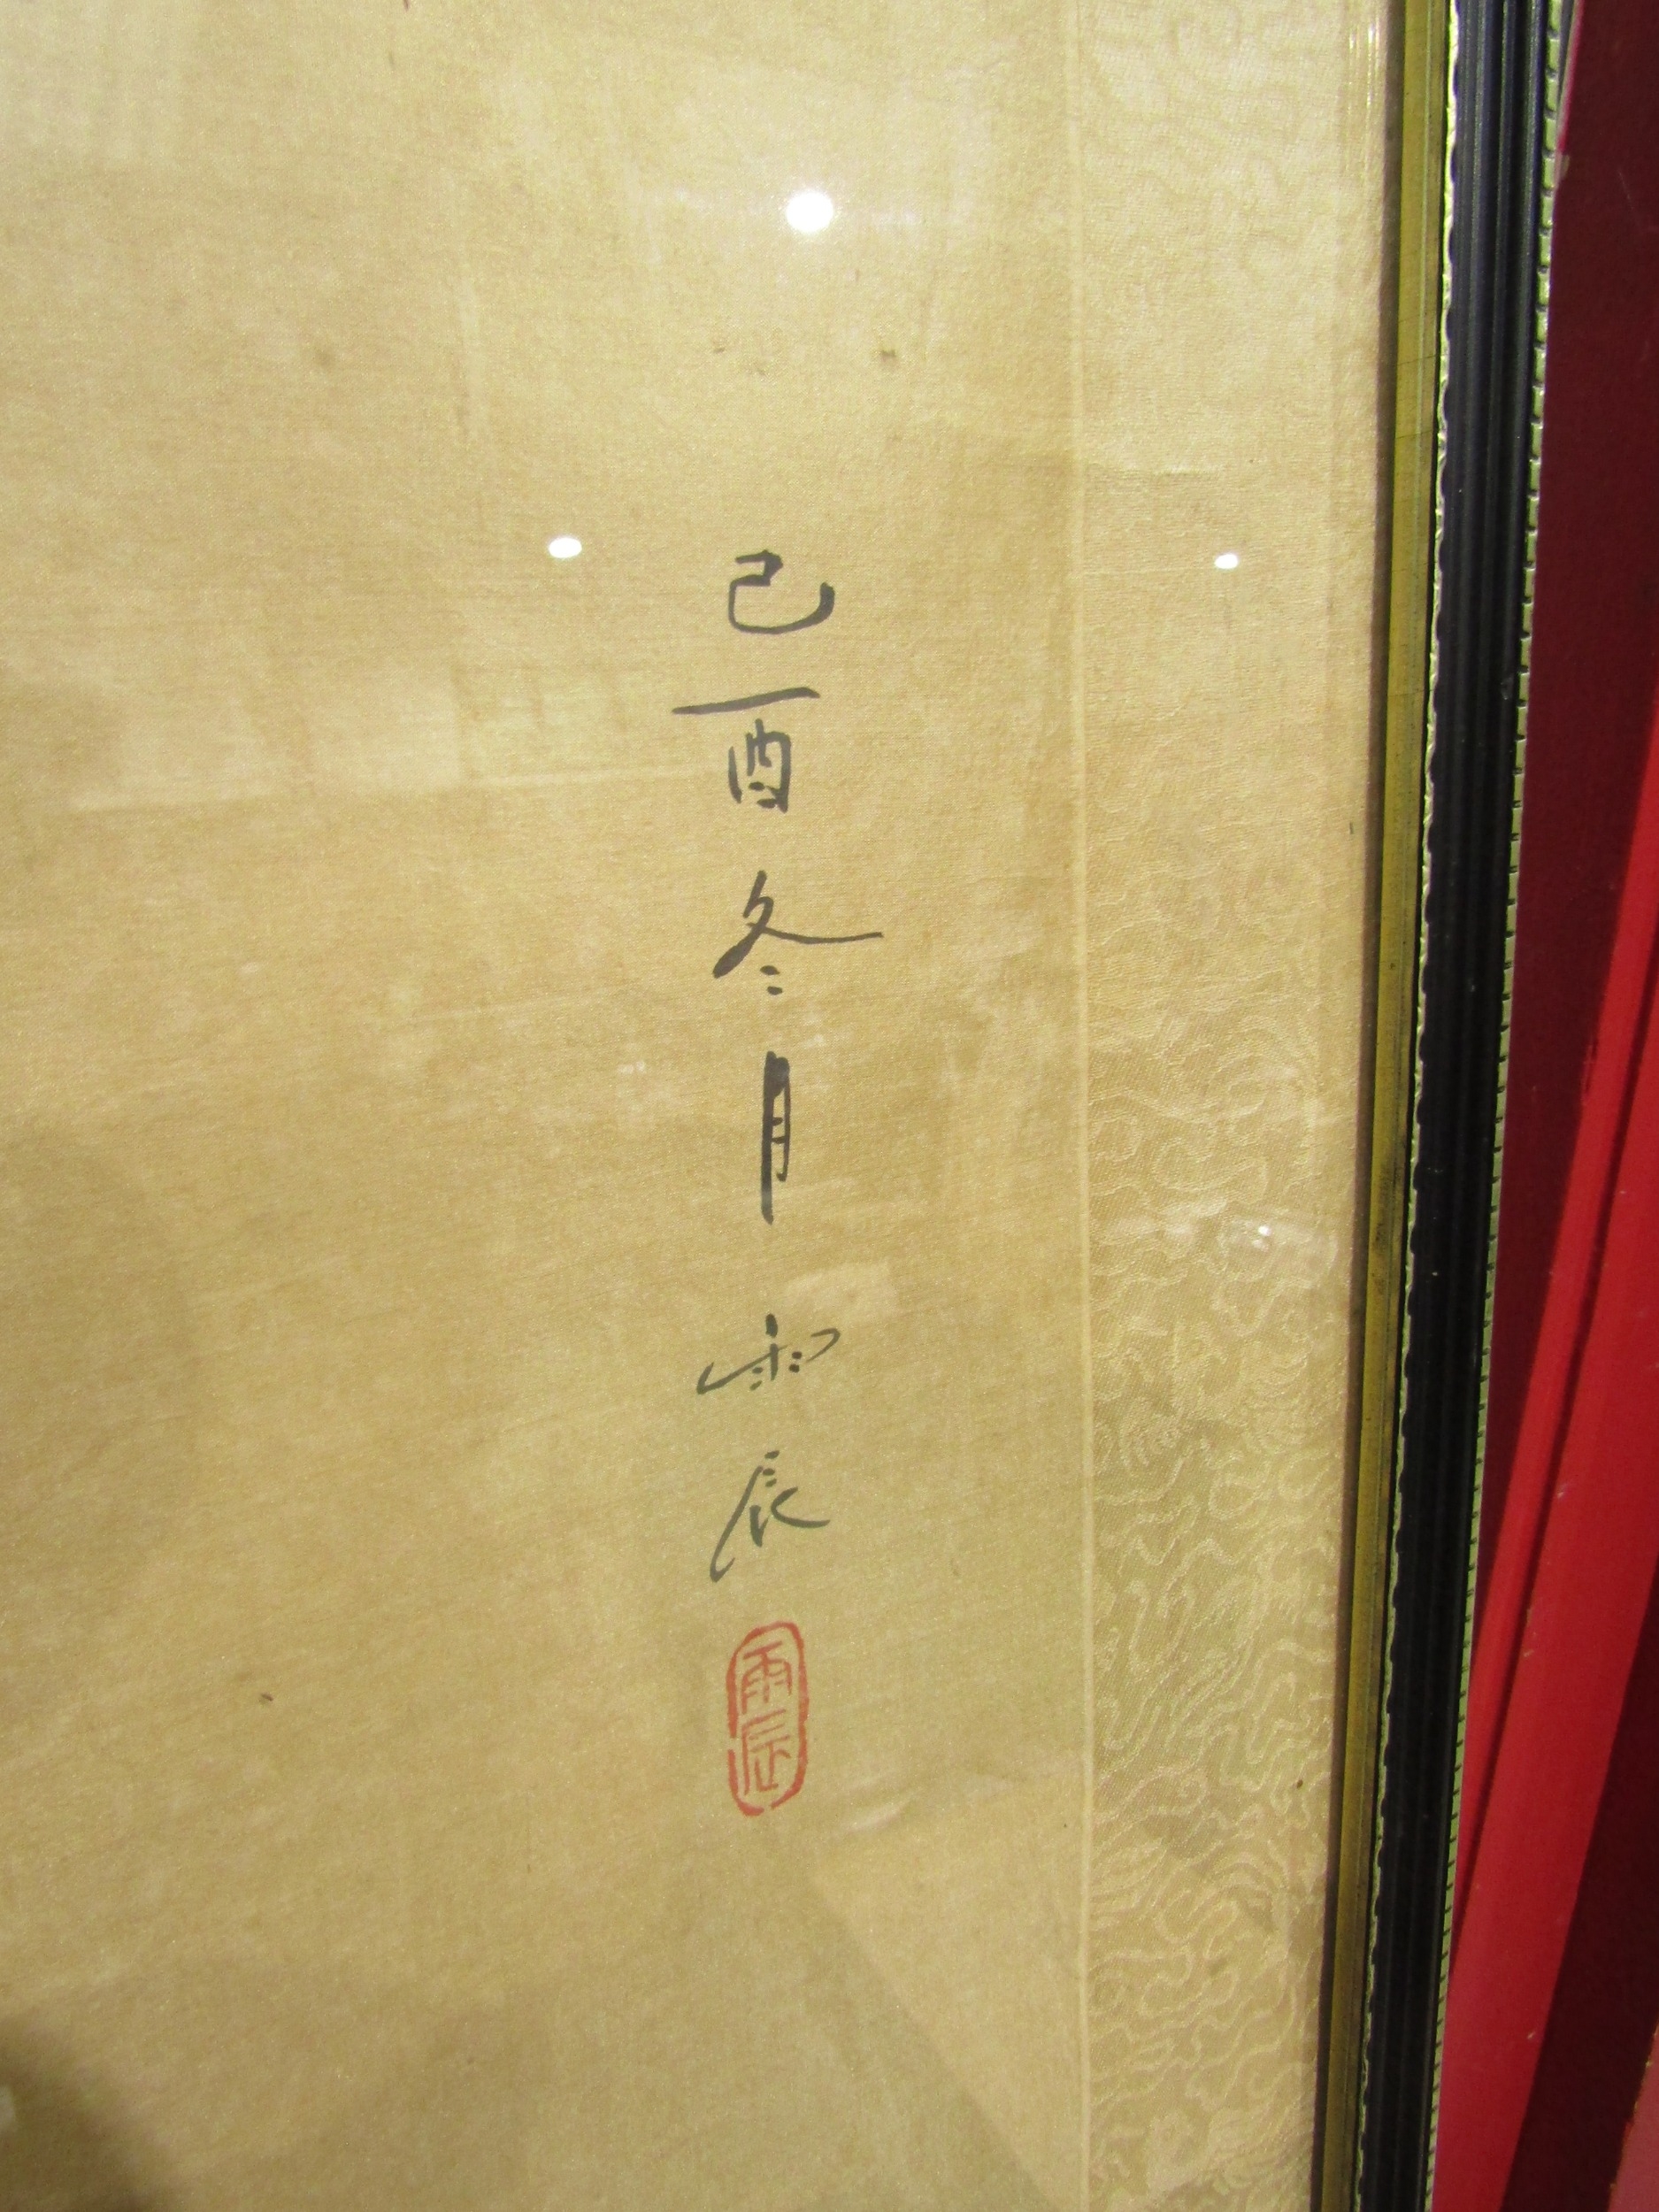 己酉冬月雨辰
雨辰